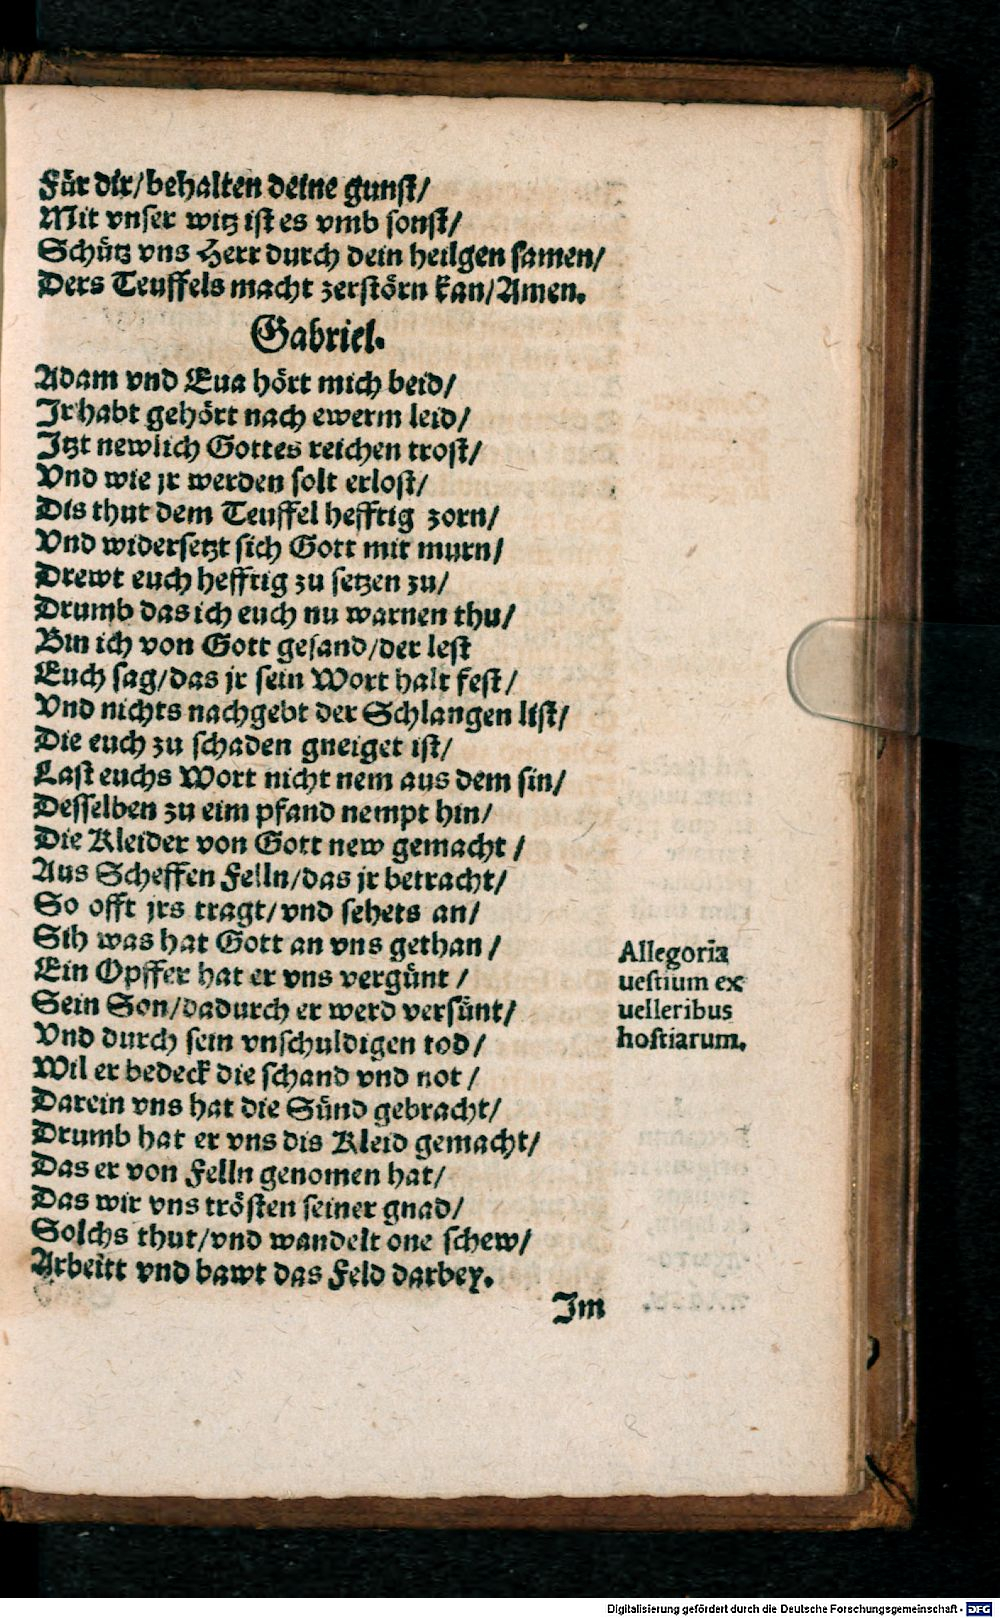 Für dir/behalten deine gunst/
Mit vnser witz ist es vmb sonst/
Schütz vns Herr durch dein heilgen samen/
Ders Teuffels macht zerstörn kan/Amen.
Gabriel.
Adam vnd Eua hört mich beid/
Jr habt gehört nach ewerm leid/
Jtzt newlich Gottes reichen trost/
Vnd wie jr werden solt erlost/
Dis thut dem Teuffel hefftig zorn/
Vnd widersetzt sich Gott mit murn/
Drewt euch hefftig zu setzen zu/
Drumb das ich euch nu warnen thu/
Bin ich von Gott gesand/der lest
Euch sag/das jr sein Wort halt fest/
Vnd nichts nachgebt der Schlangen list/
Die euch zu schaden gneiget ist/
Last euchs Wort nicht nem aus dem sin/
Desselben zu eim pfand nempt hin/
Die Kleider von Gott new gemacht/
Aus Scheffen Felln/das jr betracht/
So offt jrs tragt/vnd sehets an/
Sih was hat Gott an vns gethan/
Ein Opffer hat er vns vergünt/
Sein Son/dadurch er werd versünt/
Vnd durch sein vnschuldigen tod/
Wil er bedeck die schand vnd not/
Darein vns hat die Sünd gebracht/
Drumb hat er vns dis Kleid gemacht/
Das er von Felln genomen hat/
Das wir vns trösten seiner gnad/
Solchs thut/vnd wandelt one schew/
Arbeitt vnd bawt das Feld darbey.
Jm
Allegoria
uestium ex
uelleribus
hostiarum.
Digitalisierung gefördert durch die Deutsche Forschungsgemeinschaft - DFG